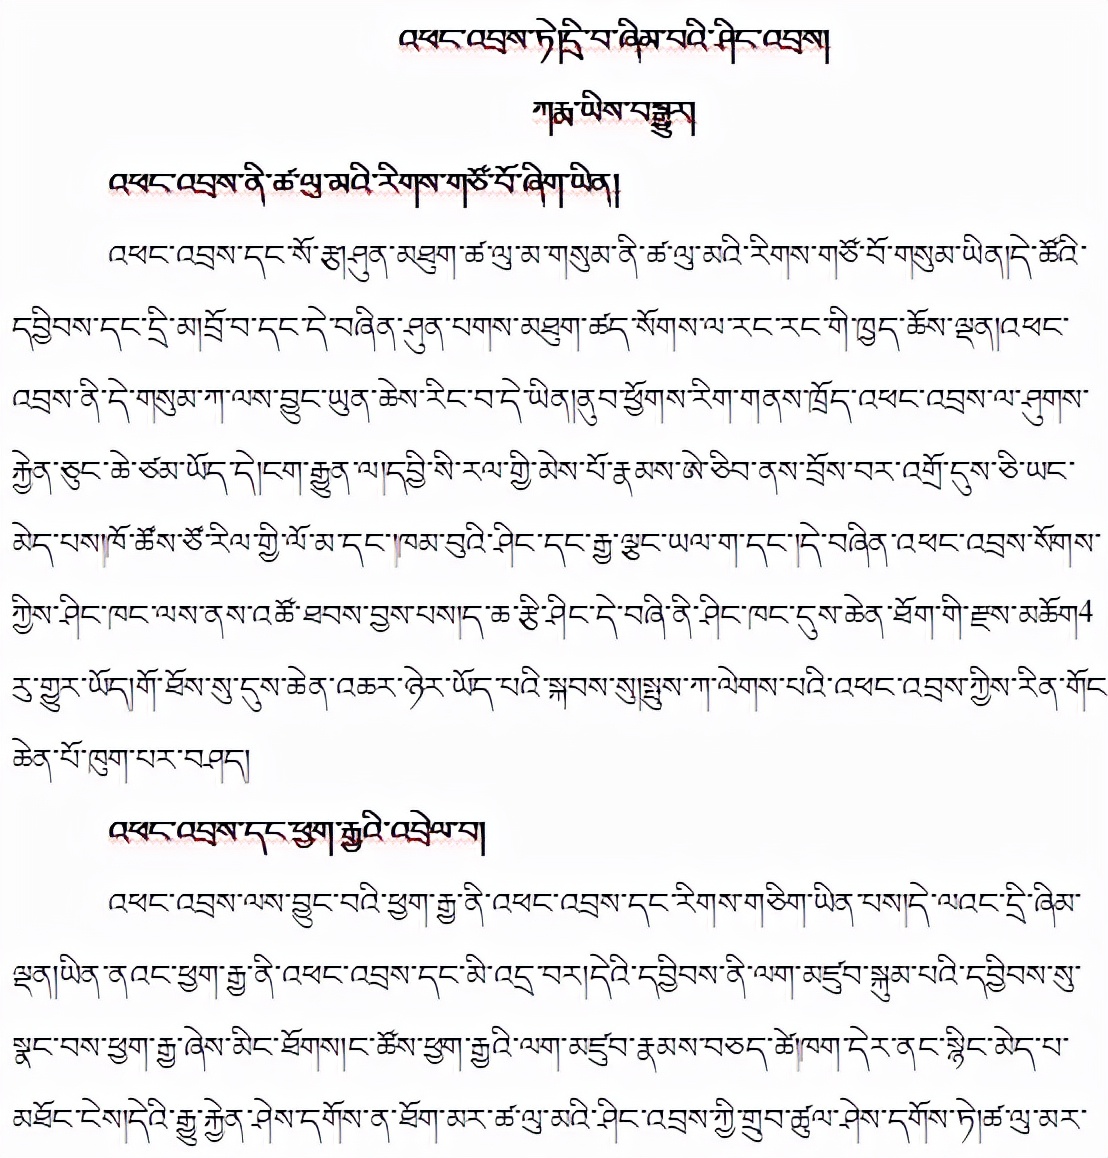 འཕང་འབྲས་ཏེ།དྲི་བ་ཞིམ་བའི་ཤིང་འབྲས།
ཀརྨ་ཡིས་བསྒྱུར།
འཕང་འབྲས་ནི་ཚ་ལུ་མའི་རིགས་གཙོ་བོ་ཞིག་ཡིན།
འཕང་འབྲས་དང་སོ་རྩྭ།ཤུན་མཐུག་ཚ་ལུ་མ་གསུམ་ནི་ཚ་ལུ་མའི་རིགས་གཙོ་བོ་གསུམ་ཡིན།དེ་ཚོའི་
དབྱིབས་དང་དྲི་མ།བྲོ་བ་དང་དེ་བཞིན་ཤུན་པགས་མཐུག་ཚད་སོགས་ལ་རང་རང་གི་ཁྱད་ཆོས་ལྡན།འཕང་
འབྲས་ནི་དེ་གསུམ་ཀ་ལས་བྱུང་ཡུན་ཆེས་རིང་བ་དེ་ཡིན།ནུབ་ཕྱོགས་རིག་གནས་ཁྲོད་འཕང་འབྲས་ལ་ཤུགས་
རྐྱེན་ཅུང་ཆེ་ཙམ་ཡོད་དེ།ངག་རྒྱུན་ལ།དབྱི་སི་རལ་གྱི་མེས་པོ་རྣམས་ཨེ་ཅིབ་ནས་བྲོས་བར་འགྲོ་དུས་ཅི་ཡང་
མེད་པས།ཁོ་ཚོས་ཙོ་རིལ་གྱི་ལོ་མ་དང་།ཁམ་བུའི་ཤིང་དང་རྒྱ་ལྕང་ཡལ་ག་དང་།དེ་བཞིན་འཕང་འབྲས་སོགས་
ཀྱིས་ཤིང་ཁང་ལས་ནས་འཚོ་ཐབས་བྱས་པས།ད་ཆ་རྩི་ཤིང་དེ་བཞི་ནི་ཤིང་ཁང་དུས་ཆེན་ཐོག་གི་རྫས་མཆོག4
རུ་གྱུར་ཡོད།གོ་ཐོས་སུ་དུས་ཆེན་འཆར་ཉེར་ཡོད་པའི་སྐབས་སུ།སྤུས་ཀ་ལེགས་པའི་འཕང་འབྲས་ཀྱིས་རིན་གོང་
ཆེན་པོ་ཁུག་པར་བཤད།
འཕང་འབྲས་དང་ཕྱག་རྒྱའི་འབྲེལ་བ།
འཕང་འབྲས་ལས་བྱུང་བའི་ཕྱག་རྒྱ་ནི་འཕང་འབྲས་དང་རིགས་གཅིག་ཡིན་པས།དེ་ལའང་དྲི་ཞིམ་
ལྡན།ཡིན་ནའང་ཕྱག་རྒྱ་ནི་འཕང་འབྲས་དང་མི་འདྲ་བར།དེའི་དབྱིབས་ནི་ལག་མཛུབ་སྐུམ་པའི་དབྱིབས་སུ་
སྣང་བས་ཕྱག་རྒྱ་ཞེས་མིང་ཐོགས།ང་ཚོས་ཕྱག་རྒྱའི་ལག་མཛུབ་རྣམས་བཅད་ཚེ།ཁག་དེར་ནང་སྙིང་མེད་པ་
མཐོང་ངེས།དེའི་རྒྱུ་རྐྱེན་ཤེས་དགོས་ན་ཐོག་མར་ཚ་ལུ་མའི་ཤིང་འབྲས་ཀྱི་གྲུབ་ཚུལ་ཤེས་དགོས་ཏེ།ཚ་ལུ་མར་